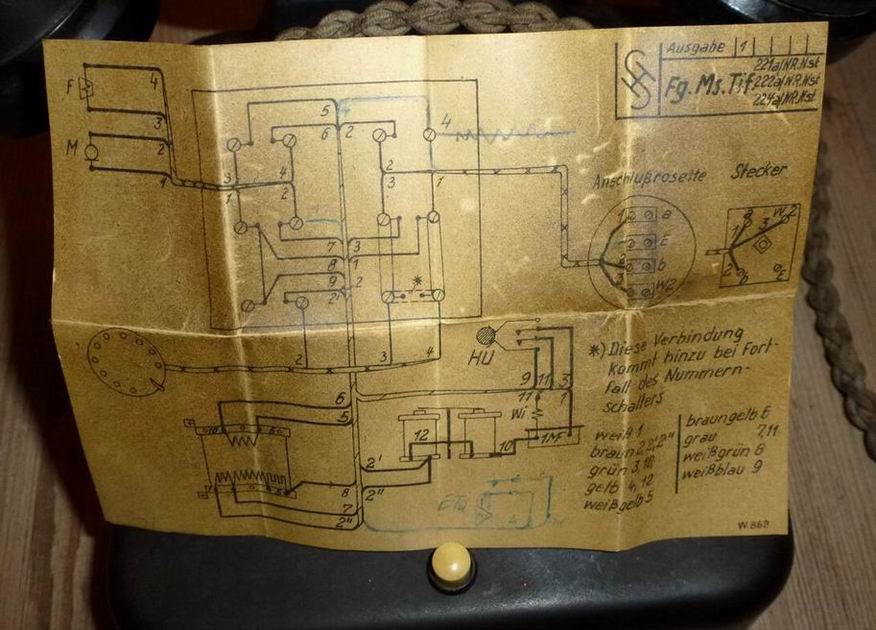 Ausgabe 1
221a/NR.Nst
Fg. Ms. Tif 222a/NR.Nst
224a/NR.Nst
F
4
3
M
2
1
5
6 2
4
3 4
1 2
2
3 1
7 3
8 1
9 2
2'
Anschlußroseite
Stecker
1 a
E
b
W2
a W2
1 3
2 b
E
2 3 4
HU
9 11 3
11 1
Wi
1MF
*) Diese Verbindung
kommt hinzu bei Fort-
fall des Nummern-
schalters
6
5
12
10
2'
2"
8
7
2"
weiß 1
braun 2,2',2"
grün 3,10
gelb 4,12
weißgelb 5
braungelb 6
grau 7,11
weißgrün 8
weißblau 9
W.869